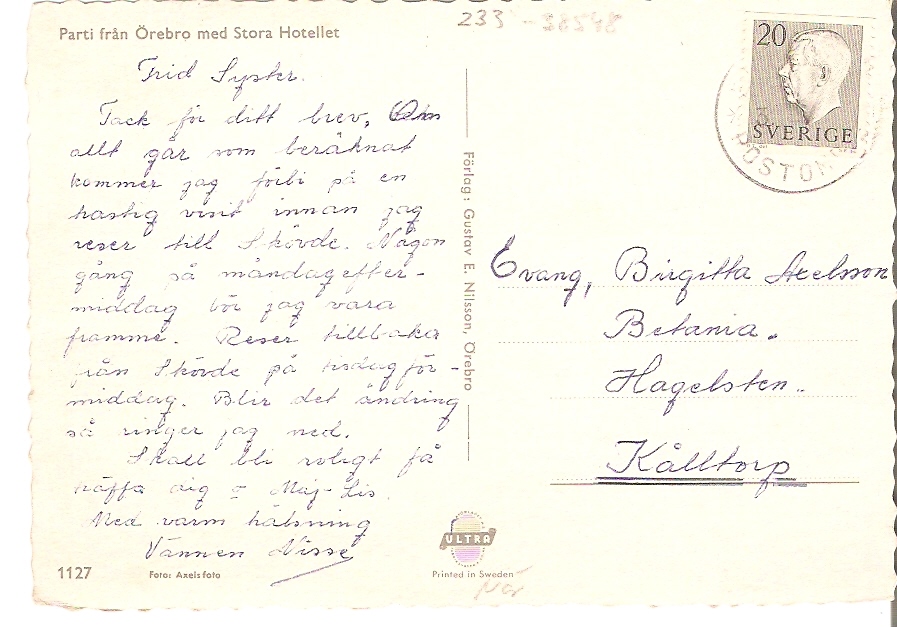 Parti från Örebro med Stora Hotellet
233 - 28548
Frid Syster.
Tack för ditt brev, Om
allt går som beräknat
kommer jag förbi på en
hastig visit innan jag
reser till Skövde. Någon
gång på måndagefter-
middag bör jag vara
framme. Reser tillbaka
från Skövde på tisdagför-
middag. Blir det ändring
så ringer jag ned.
Skall bli roligt få
träffa dig o Maj-Lis.
Med varm hälsning
Vännen Nisse
1127
Foto: Axelsfoto
Förlag: Gustav E. Nilsson, Örebro
ULTRA
Printed in Sweden
20
SVERIGE
Evang, Birgitta Axelsson
Betania.
Hagelsten.
Kålltorp